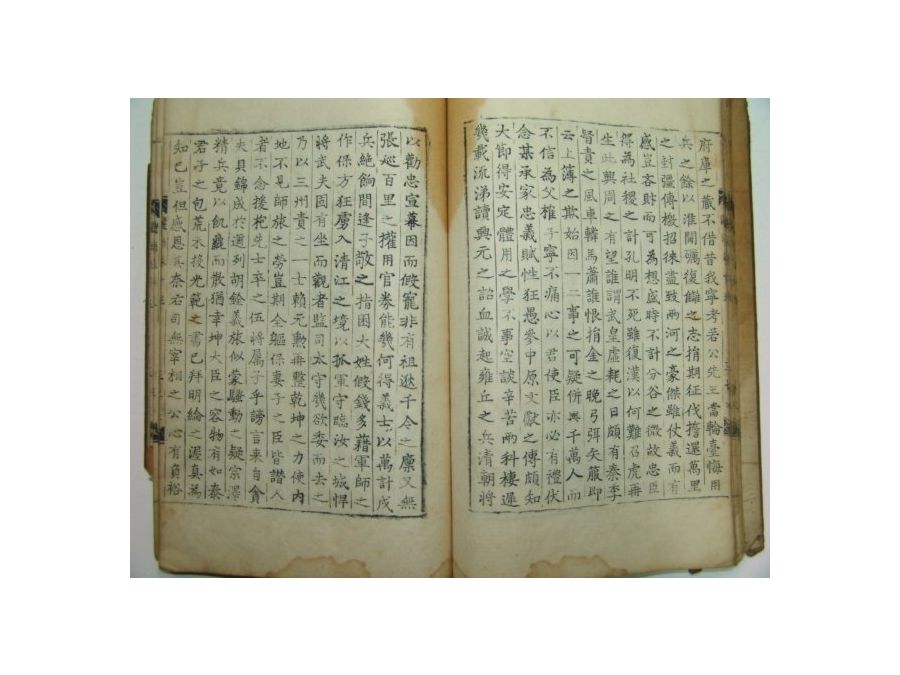 府庫之藏不借昔我寧考若公先王當輪臺悔用
兵之餘以淮開彌復讎之志指期征伐擔還萬里
之封疆傳檄招徠盡致兩河之豪傑雖仗義而有
感豈吝財而可為想盛時不計分谷之微故忠臣
得為社稷之計孔明不死雖復漢以何難召虎再
生此興周之有望誰謂武皇虛耗之日頗有泰李
皆責之風車轔馬蕭誰恨捐金之晚弓弭矢箙即
云上簿之欺始因一二事之可疑併與千萬人而
不信為父權子寧不痛心以君使臣亦必有禮伏
念某承家忠義賦性狂愚參中原文獻之傳頗知
大節得安定體用之學不事空談辛苦兩科棲遲
幾載流涕讀興元之詔血誠起雍丘之兵清朝將
以勸忠宣幕因而假寵非有祖逖千令之廩又無
張巡百里之權用官券能幾何得義士以萬計戍
兵絶餉間逢子敬之指囷大姓假錢多藉軍師之
作保方狂虜入清江之境以孤軍守臨汝之城悍
將武夫固有坐而觀者監司太守幾欲委而去之
乃以三州責之一士賴元勲再整乾坤之力使内
地不見師旅之勞豈期全軀保妻子之臣皆譖人
者不念援枹先士卒之伍將屬子乎謗言来自禽
夫貝錦成於適列胡餘義旅似蒙騷動之疑宗澤
精兵竟以飢羅而散猶幸坤大臣之容物有如泰
君子之包荒木投光範之書已拜明綸之渥真爲
知已豈但感恩再奈右司無宰相之公心有負裕